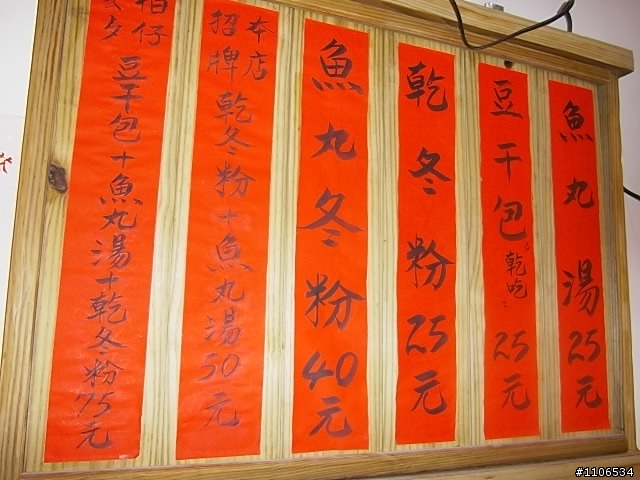 魚丸湯25元
豆干包〝乾吃〞25元
乾冬粉25元
魚丸冬粉40元
本店招牌
乾冬粉+魚丸湯50元
相仔
豆干包+魚丸湯+乾冬粉75元
#1106534